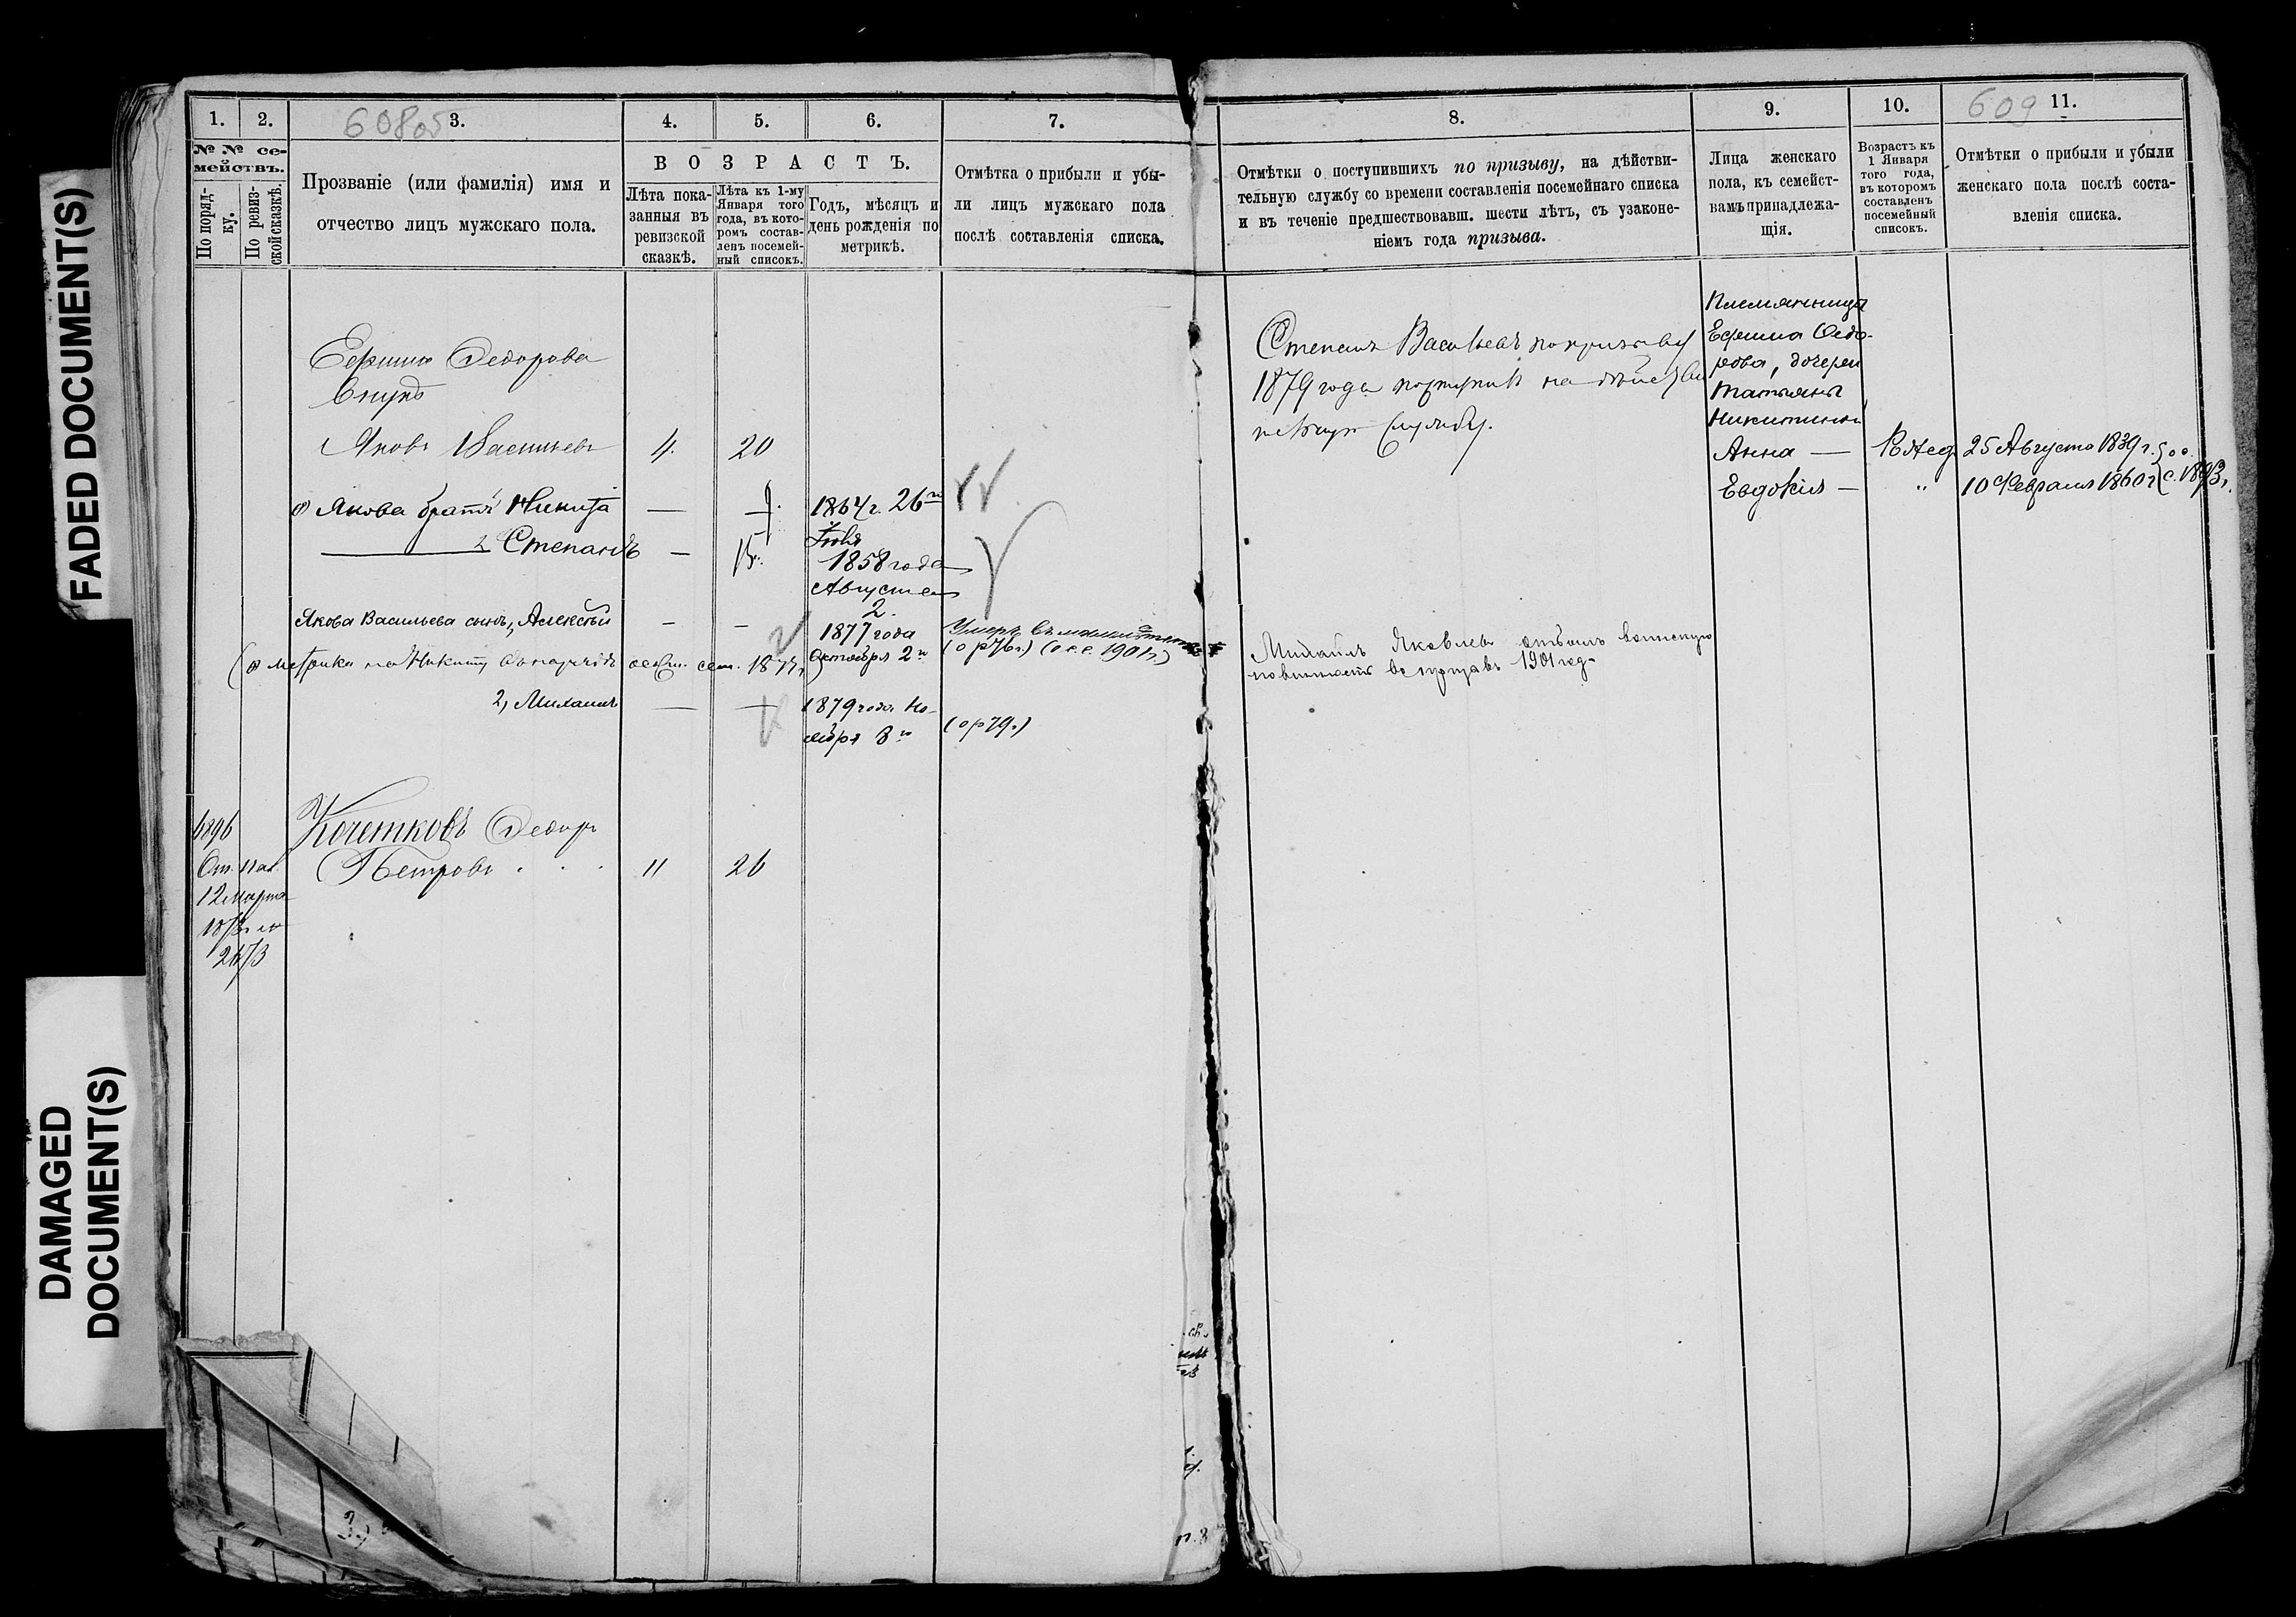 FADED DOCUMENT(S)
DAMAGED
DOCUMENT(S)
1.
2.
608об
3.
4.
5.
6.
7.
№ № се-
мействъ.
По поряд-
ку.
По ревиз-
ской сказкѣ.
Прозваніе (или фамилія) имя и
отчество лицъ мужскаго пола.
ВОЗРАСТЪ.
Лѣта пока-
занныя въ
ревизской
сказкѣ.
Лѣта къ 1-му
Января того
года, въ кото-
ромъ состав-
ленъ посемей-
ный списокъ.
Годъ, мѣсяцъ и
день рожденія по
метрикѣ.
Отмѣтка о прибыли и убы-
ли лицъ мужскаго пола
послѣ составленія списка.
Ефима Федорова
внукъ
Яковъ Васильевъ 4. 20
Якова братъ Никита — 9. 1864 г. 26го
2 Степанъ — 15.
1858 года
Августа
2.
Якова Васильева сынъ, Алексѣй — — 1877 года
Октября 2го
Умеръ
(о р 76 г.) (о с.с. 1901 г.)
2, Михаилъ — — 1879 года Но-
ября 8го
(о р 79 г.)
6896
Кочетковъ Федоръ
Петровъ . . . 11 26
12 марта
8.
9.
10.
609
11.
Отмѣтки о поступившихъ по призыву, на дѣйстви-
тельную службу со времени составленія посемейнаго списка
и въ теченіе предшествовавш. шести лѣтъ, съ узаконе-
ніемъ года призыва.
Лица женскаго
пола, къ семейст-
вамъ принадлежа-
щія.
Возрастъ къ
1 Января
того года,
въ которомъ
составленъ
посемейный
списокъ.
Отмѣтки о прибыли и убыли
женскаго пола послѣ соста-
вленія списка.
Степанъ Васильевъ по призыву
1879 года поступилъ на дѣйстви
тельную службу.
Михаилъ Яковлевъ отбылъ воинскую
повинность въ призывъ 1901 год-
Племянница
Ефима Федо-
рова, дочери
Татьяны
Никитины
Анна — 25 Августа 1839 г.
Евдокія — " 10 Февраля 1860 г.